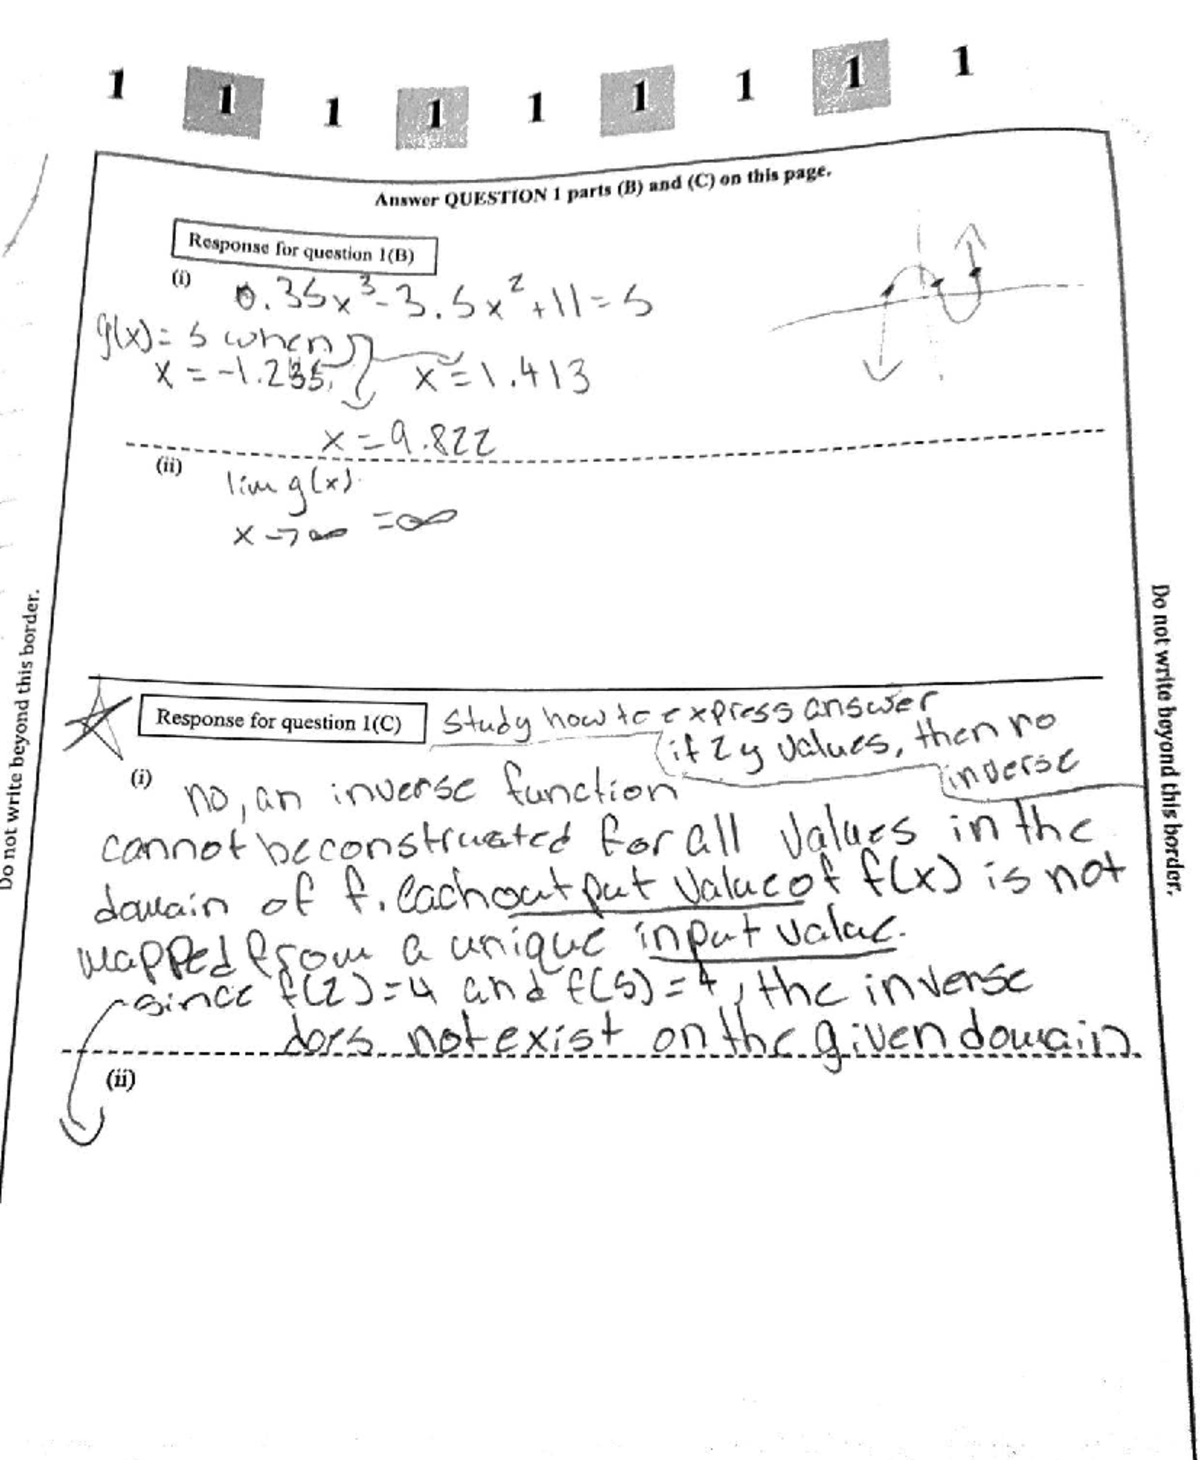 1 1 1 1 1 1 1 1 1
Answer QUESTION 1 parts (B) and (C) on this page.
Response for question 1(B)
(i) 0.35x³-3.5x²+11=5
g(x)=5 when
x=-1.235, x=1.413
x=9.822
(ii) lim g(x)
x→∞ =∞
Do not write beyond this border.
Do not write beyond this border.
Response for question 1(C) Study how to express answer
if 2 y values, then no
inverse
(i) no, an inverse function
cannot be constructed for all values in the
domain of f. each output value of f(x) is not
mapped from a unique input value.
since f(2)=4 and f(5)=4, the inverse
does not exist on the given domain.
(ii)